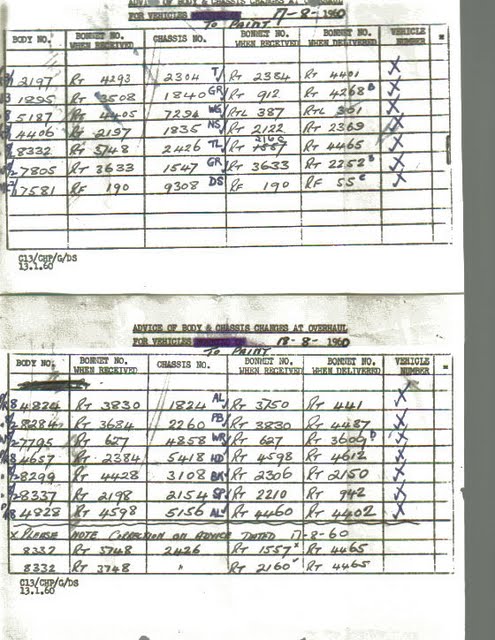 ADVICE OF BODY & CHASSIS CHANGES AT OVERHAUL
FOR VEHICLES 17-8-1960
TO PAINT
BODY NO. BONNET NO. WHEN RECEIVED CHASSIS NO. BONNET NO. WHEN RECEIVED BONNET NO. WHEN DELIVERED VEHICLE NUMBER
2197 RT 4293 2304 T/ RT 2384 RT 4401 X
1895 RT 3508 1840 GR/ RT 912 RT 4268 B X
5187 RT 4405 7294 WG RTL 387 RTL 301 X
4406 RT 2197 1835 NS/ RT 2122 RT 2369 X
8332 RT 5748 2426 TL/ RT 2160 RT 4465 X
7805 RT 3633 1547 GR RT 3633 RT 2252 B X
7581 RF 190 9308 DS RF 190 RF 55 C X
C13/CHP/G/DS
13.1.60
ADVICE OF BODY & CHASSIS CHANGES AT OVERHAUL
FOR VEHICLES 18-8-1960
TO PAINT
BODY NO. BONNET NO. WHEN RECEIVED CHASSIS NO. BONNET NO. WHEN RECEIVED BONNET NO. WHEN DELIVERED VEHICLE NUMBER
4824 RT 3830 1824 AL/ RT 3750 RT 441 X
8284 RT 3684 2260 PB/ RT 3830 RT 4487 X
7795 RT 627 4858 WR RT 627 RT 3609 D X
4657 RT 2384 5418 HD RT 4598 RT 4612 X
8299 RT 4428 3108 BK RT 2306 RT 2150 X
8337 RT 2198 2154 SP/ RT 2210 RT 742 X
4828 RT 4598 5156 AL/ RT 4460 RT 4402 X
X PLEASE NOTE CORRECTION ON ADVICE DATED 17-8-60
8332 RT 5748 2426 RT 1557 X RT 4465
8332 RT 3748 " RT 2160 RT 4465
C13/CHP/G/DS
13.1.60